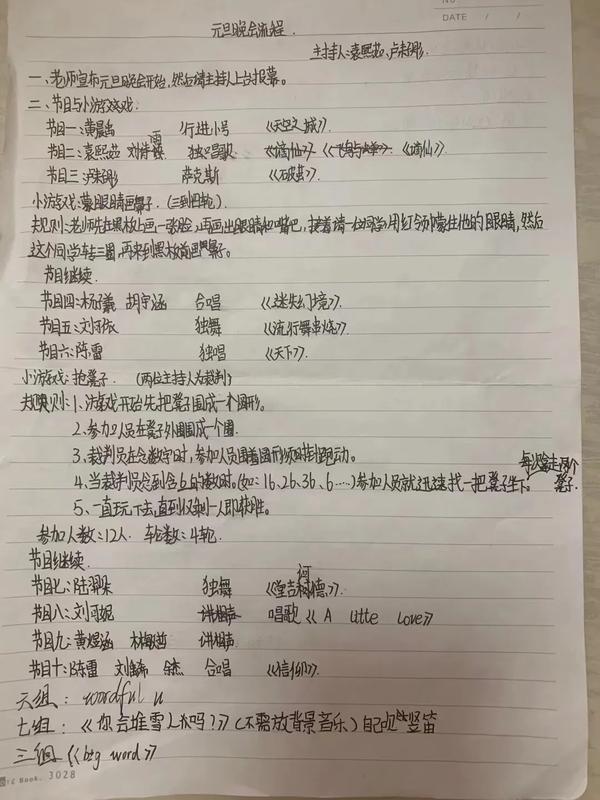 NO
DATE / /
元旦晚会流程.
主持人:袁熙茹、卢
一、老师宣布元旦晚会开始,然后请主持人上台报幕。
二、节目与小游戏:
节目一:黄晨 行进小号 《天空之城》.
节目二:袁熙茹 刘诗 独唱歌 《谪仙》 《谪仙》
节目三:卢 萨克斯 《破茧》.
小游戏:蒙眼睛画鼻子.(三到四轮).
规则:老师先在黑板上画一张脸,再画出眼睛和嘴巴,接着请一位同学用红领巾蒙住他的眼睛,然后
这个同学转三圈,再来到黑板前画鼻子.
节目继续
节目四:杨 胡宇涵 合唱 《迷失幻境》.
节目五:刘 独舞 《流行舞串烧》.
节目六:陈雷 独唱 《天下》.
小游戏:抢凳子. (两位主持人为裁判)
规则:1、游戏开始先把凳子围成一个圆形。
2、参加人员在凳子外围围成一个圈.
3、裁判员在念数字时,参加人员围着圆形顺时针跑动。
每次拿走两个
4、当裁判员念到含6的数时.(如:16、26、36、6……)参加人员就迅速找一把凳子坐下。 凳子.
5、一直玩下去,直到仅剩一人即获胜。
参加人数:12人. 轮数:4轮.
节目继续.
节目七:陆羿 独舞 《堂吉诃德》.
节目八:刘可妮 讲相声 唱歌《A little Love》
节目九:黄煜涵 林 讲相声
节目十:陈雷 刘 余杰 合唱 《信仰》.
六组: wordful u
七组:《你会堆雪人吗?》(不需放背景音乐)自己吹竖笛
三组《big word》
Book. 3028